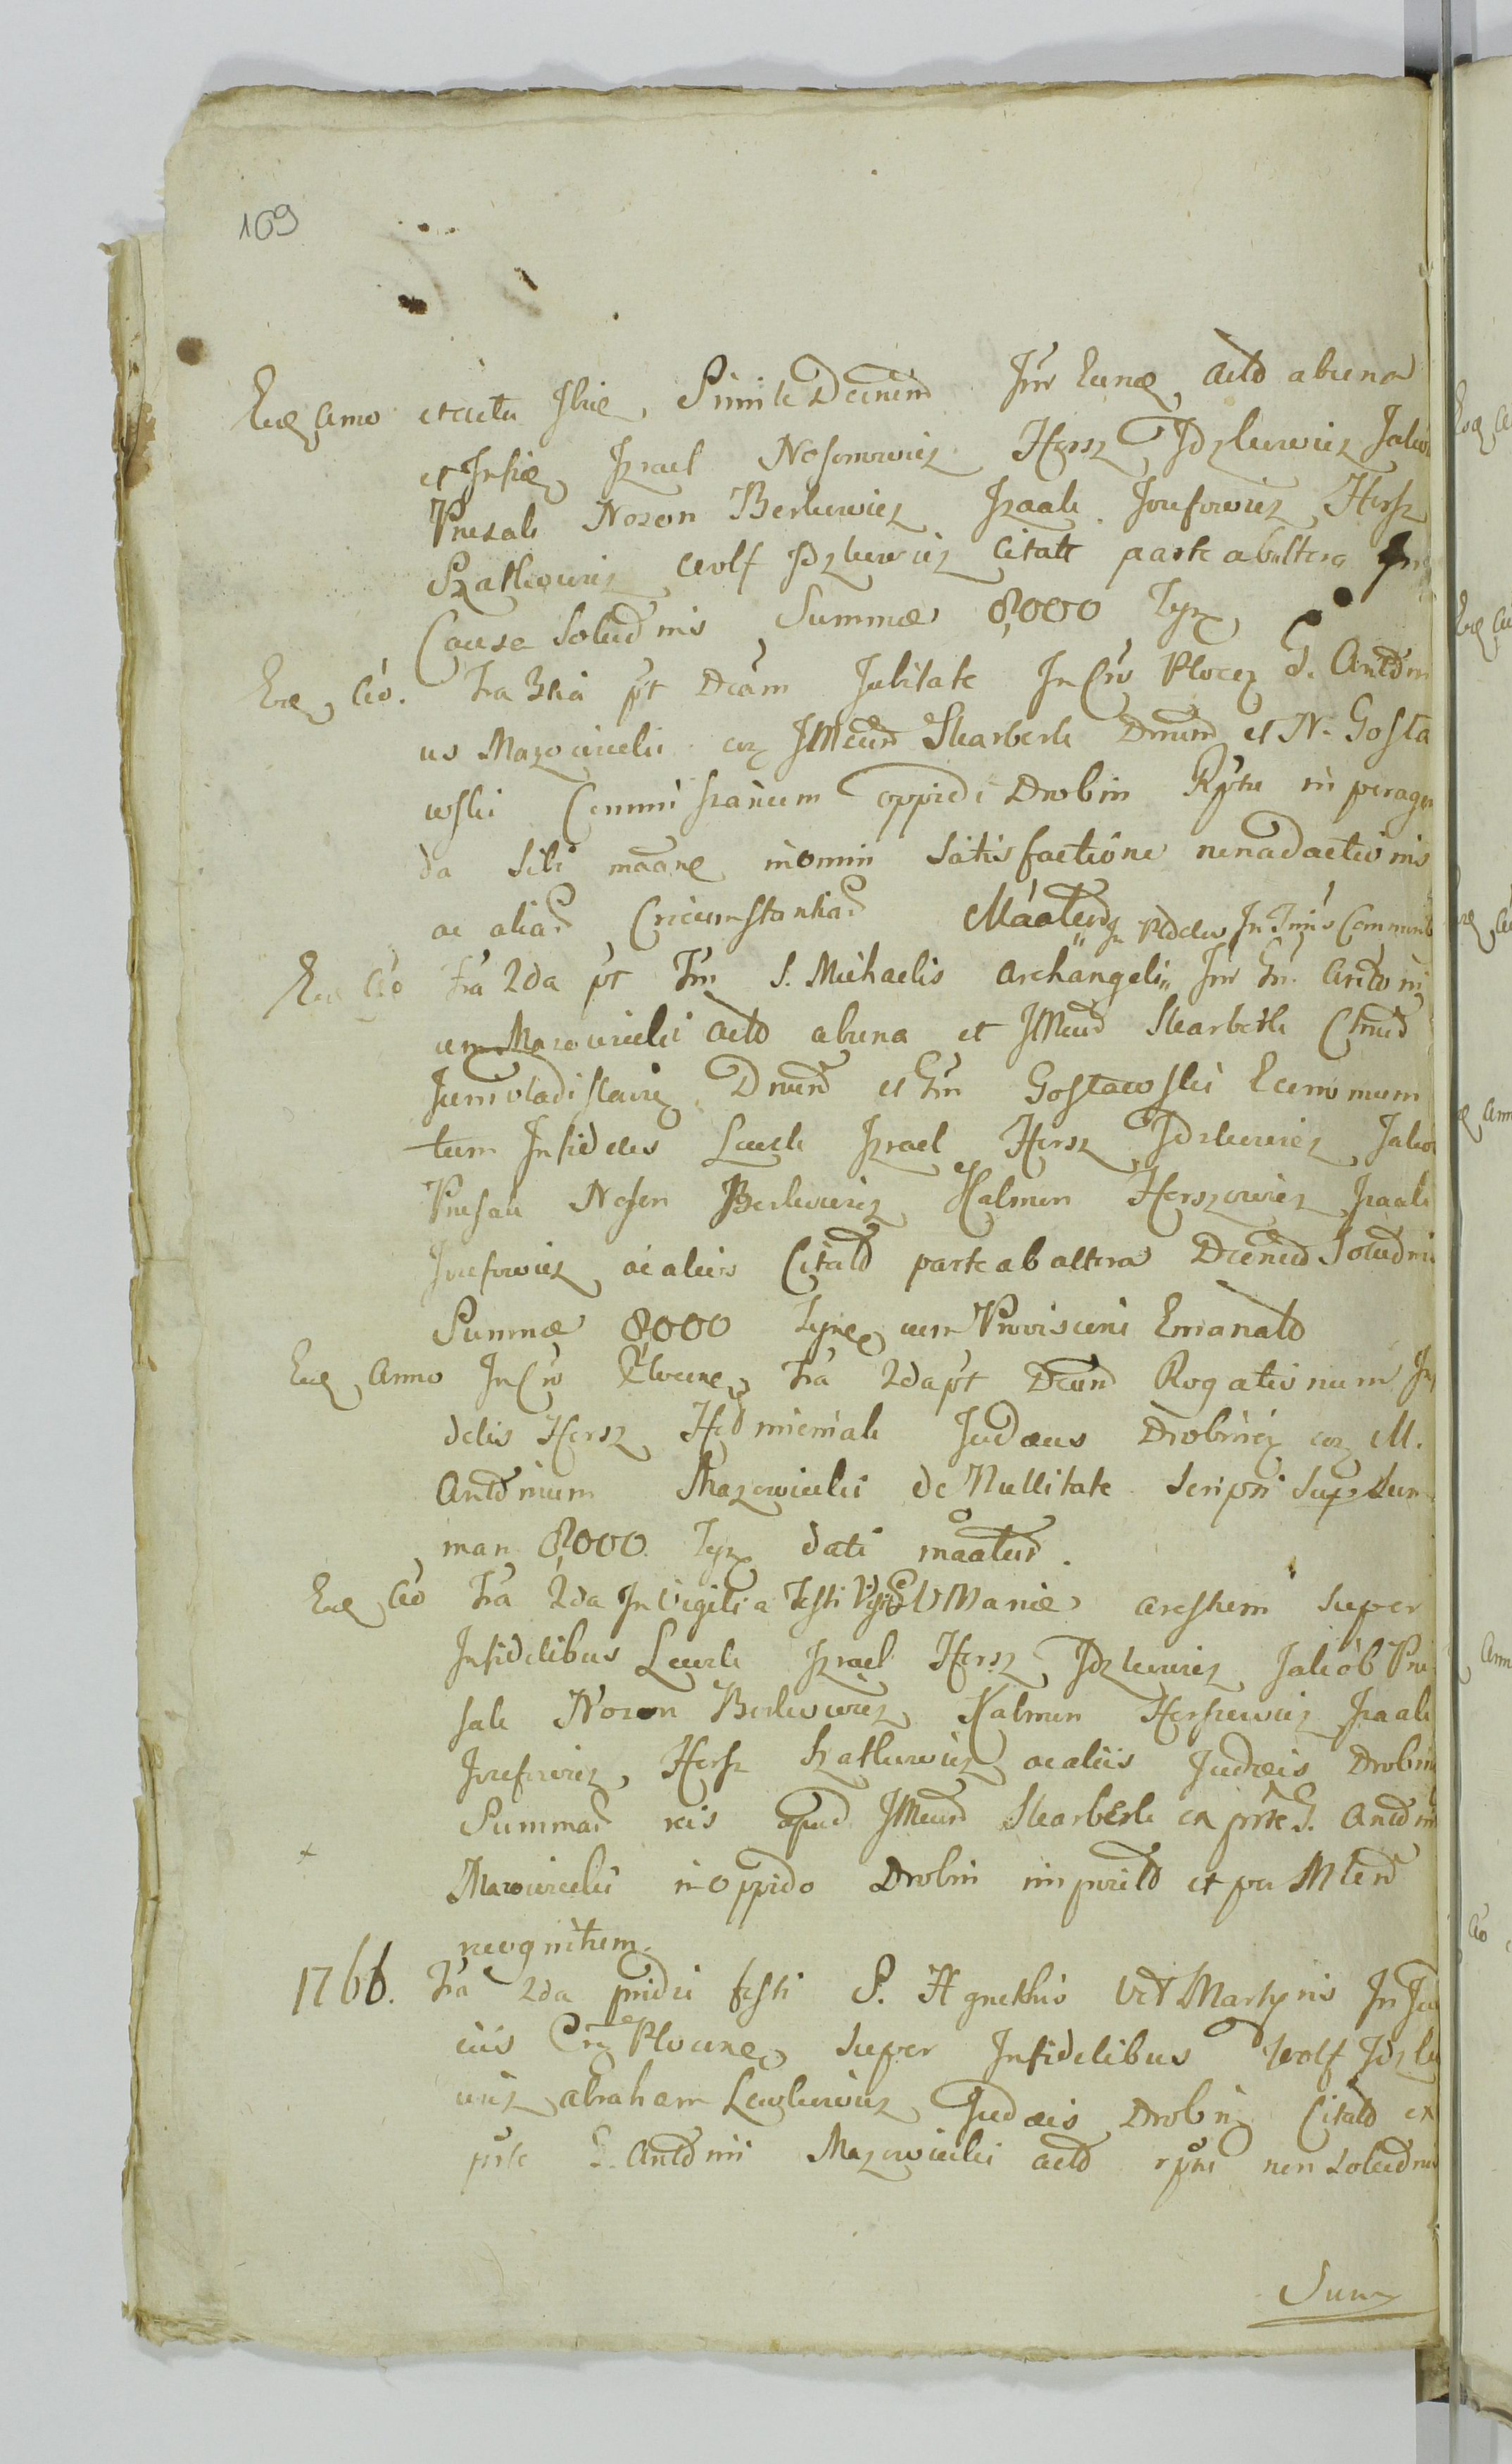 109
Eod Anno et actu Ibid. Simile Decretum Inr Eund actd ab una
et Infid Izrael Nosonowicz Hersz Idzkowicz Jakob
Pniesak Noson Berkowicz Izaak Jozefowicz Hersz
Szatkowicz Wolf Idzkowicz Citatt parte ab altera
Causa Solud nis Summæ 8,000 Tynf
Eod Ao. Fra 3tia pt Dcam Jubilate In Cro Plocen G. Antd ni
us Mazowiecki coz JMcum Skarbek Dnum et N. Gosta
wski Commissarium oppidi Drobin Rptu in peragen
da sibi maane in omni Satisfactione
ac aliad Circumstantiad Maatend In Ptdclis In Tmis Communi
Eod Ao Fra 2da pt Fm S. Michaelis Archangeli" Inr Gm. Antd ni
um Mazowiecki actd ab una et JMcum Skarbek Ctnud
Junivladislavien Dnum et Gm Gostawski Econ mum
tum Infideles Lewek Izrael Hersz Idzkowicz Jakob
Pniesak Noson Berkowicz Kalmen Herszowicz Izaak
Jozefowicz ac alios Citatd parte ab altera Decretd Solud nis
Summæ 8000 Tynf cum Provisioni Emanatd
Eod Anno In Cro Plocen Fra 2da pt Dcam Rogationum Infi
delis Hersz Judæus Drobinen coz M.
Antd nium Mazowiecki de Nullitate Scripti Sup Sum
mam 8,000 Tynf dati maatud.
Eod Ao Fra 2da In Vigilia Festi Visit BVMariæ arestum super
Infidelibus Lewek Izrael Hersz Idzkowicz Jakób Pnie
sak Noson Berkowicz Kalmen Herszkowicz Izaak
Jozefowicz, Hersz Szatkowicz ac aliis Judæis Drobin
Summad reis apud JMcum Skarbek ex prte G. Antd ni
Mazowiecki in oppido Drobin impositd et per Mtend
recognitum.
1766. Fra 2da pridie festi S. Agnethis V et Martyris In Judi
ciis Cen Plocen super Infidelibus Wolf Idzko
wicz Abraham Lewkowicz Judæis Drobinen Citatd ex
prte G. Antd nii Mazowiecki actd rptu non Solud nis
Sum